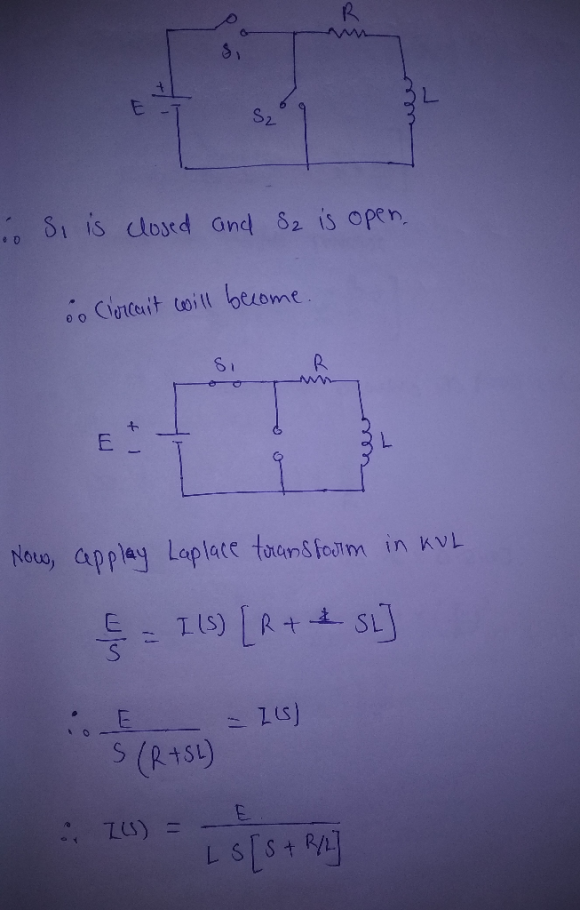 R
S1
E + -
S2
L
∴ S1 is closed and S2 is open.
∴ Circuit will become.
S1
R
E + -
L
Now, applay Laplace transform in KVL
E/S = I(S) [R + SL]
∴ E / S(R+SL) = I(S)
∴ I(S) = E / L S[S + R/L]